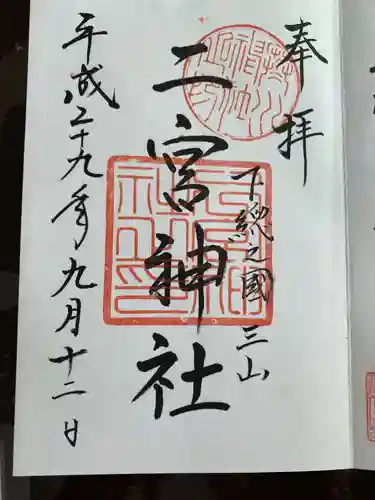 奉拝
下總之國三山
二宮神社
平成二十九年九月十二日